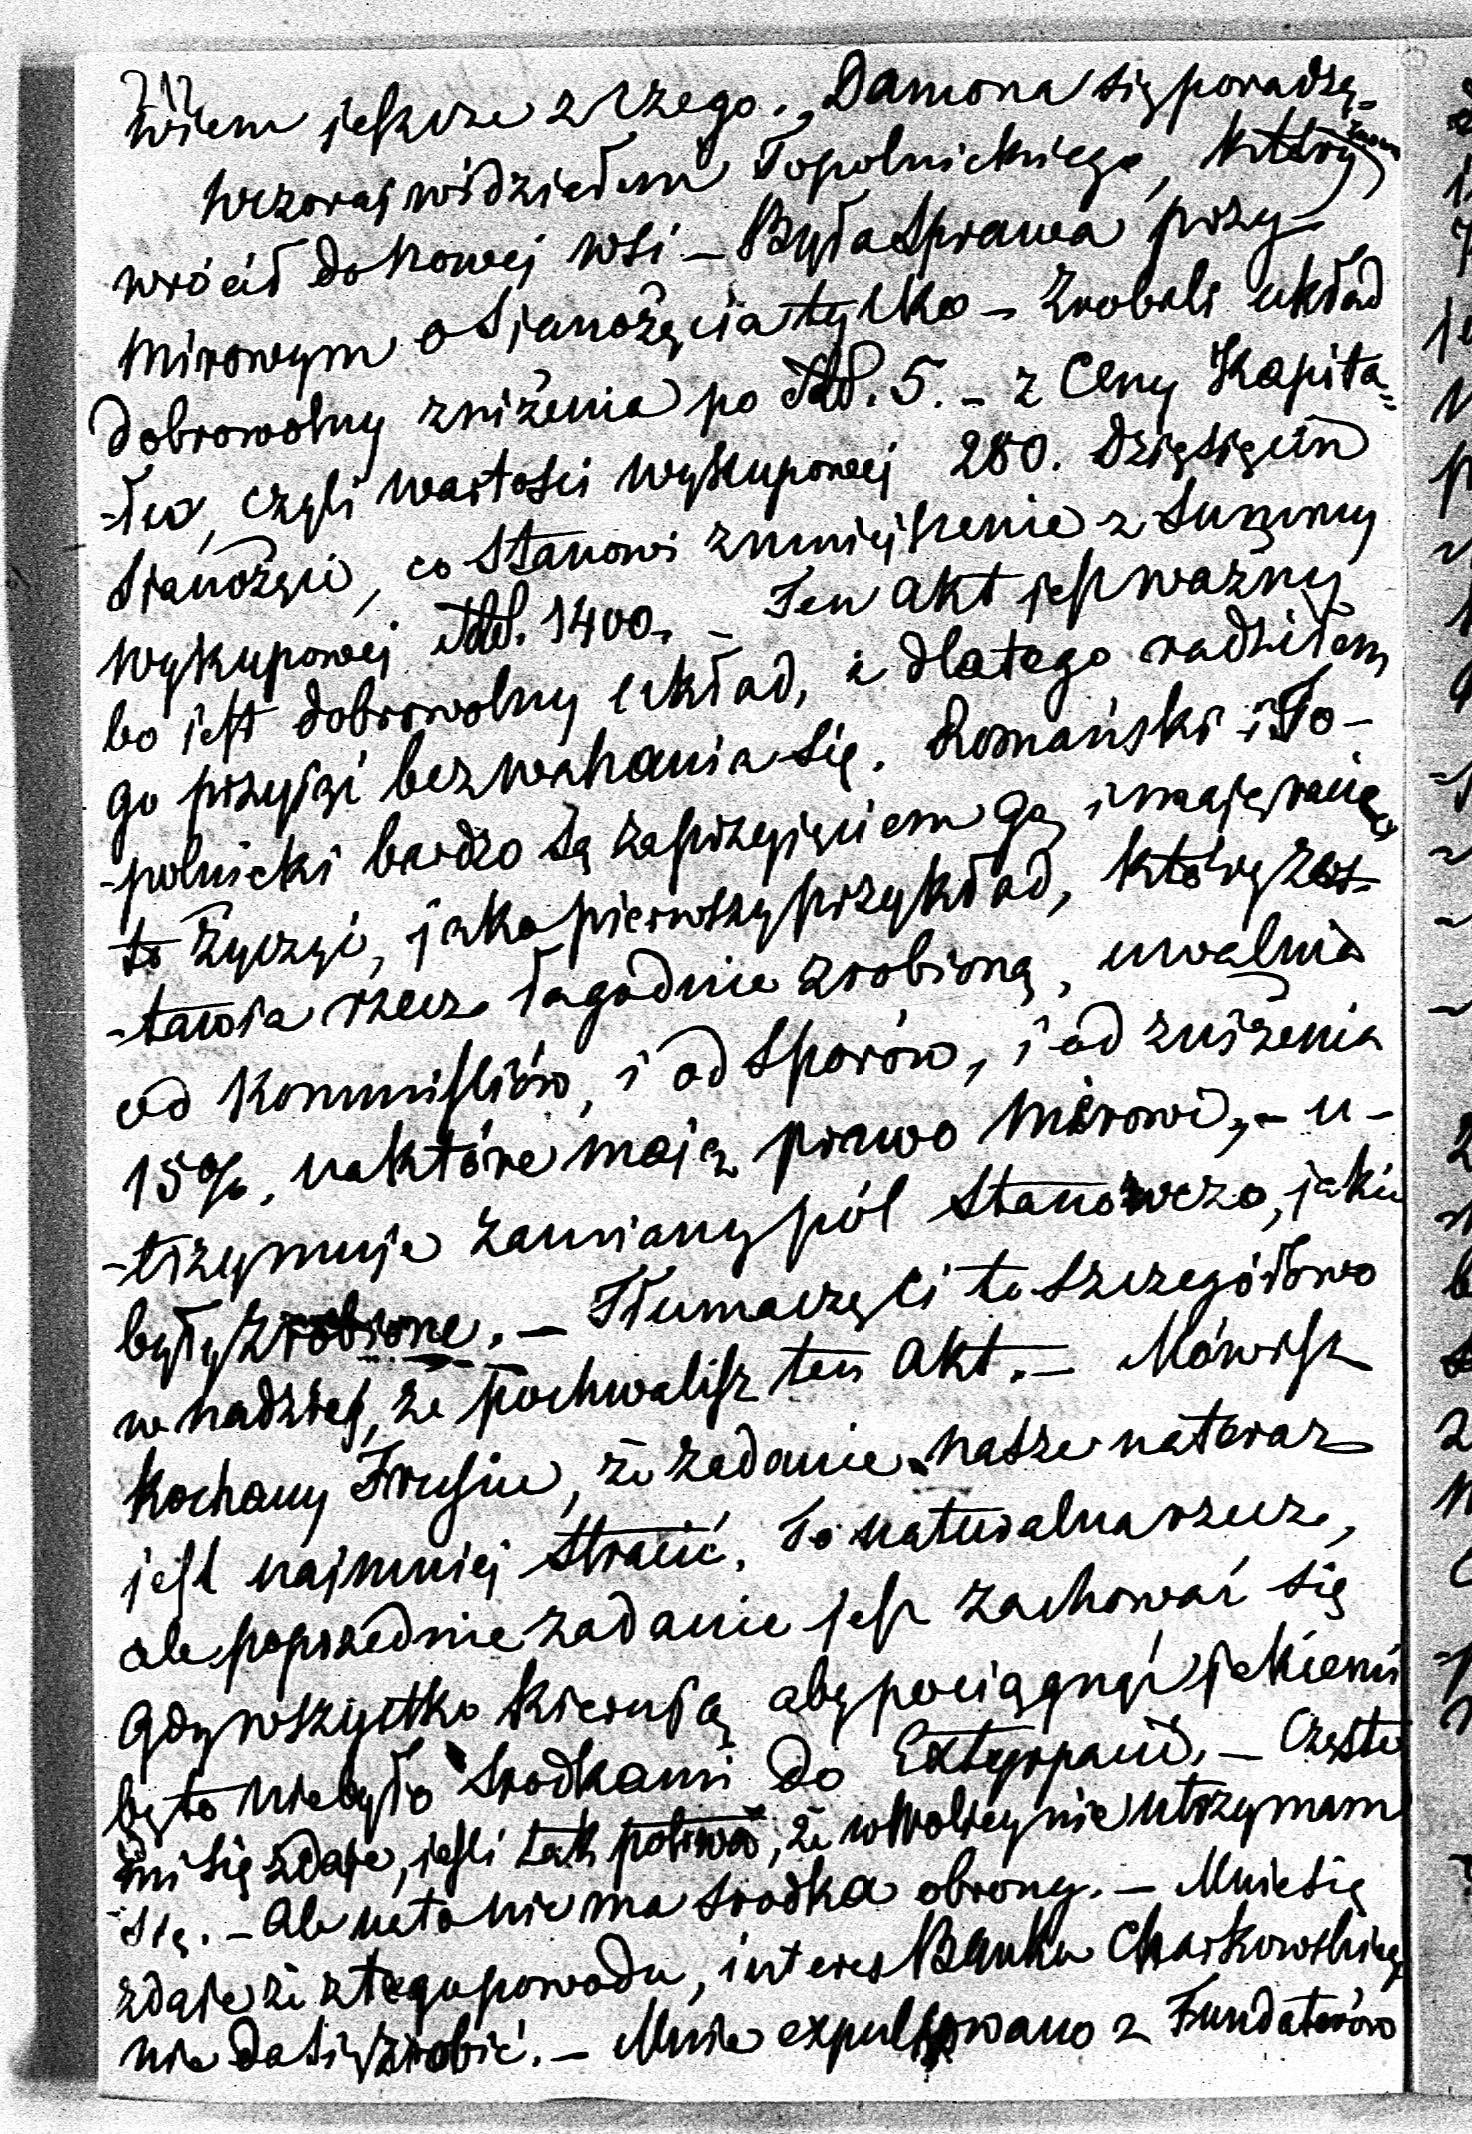 wiem jeszcze z czego. Damona się poradzę.
Wczoraj widziałem Topolnickiego, który znowu
wrócił do Nowej Wsi – Była Sprawa przy
Mirowym o Sianożęcia tylko – Zrobili układ
dobrowolny zniżenia po Rub. 5. – z Ceny Kapita=
-łu, czyli wartości wykupowej 280. Dziesięcin
Sianożęci, co Stanowi zmniejszenie z Summy
wykupowej Rub. 1400. – Ten akt jest ważny
bo jest dobrowolny układ, i dlatego radziłem
go przyjąć bez wahania się. Romański i To-
-polnicki bardzo są za przyjęciem go, i mają racię
to życzyć, jako pierwszy przykład, który zos-
-tawia rzecz łagodnie zrobioną, uwalnia
od Kommissiów, i od Sporów, i od zniżenia
15%, na które mają prawo Mirowi, – u-
-trzymuje zamiany pól Stanowczo, jakie
były zrobione. – Tłumaczę Ci to szczegółowo
w nadziei, że pochwalisz ten akt. – Mówisz
Kochany Frusiu, że zadanie nasze na teraz
jest najmniej Stracić. To naturalna rzecz,
ale poprzednie zadanie jest zachować się
gdy wszystko kierują aby pociągnąć jakiemi
by to nie było Srodkami do Extyrpacii. – Często
mi się zdaje, jeśli tak potrwa, że w Wołyniu nie utrzymam
się. – Ale na to nie ma srodka obrony. – Mnie się
zdaje że z tego powodu, interes Banku Charkowskiego
nie da się zrobić. – Mnie expulsowano z Fundatorów